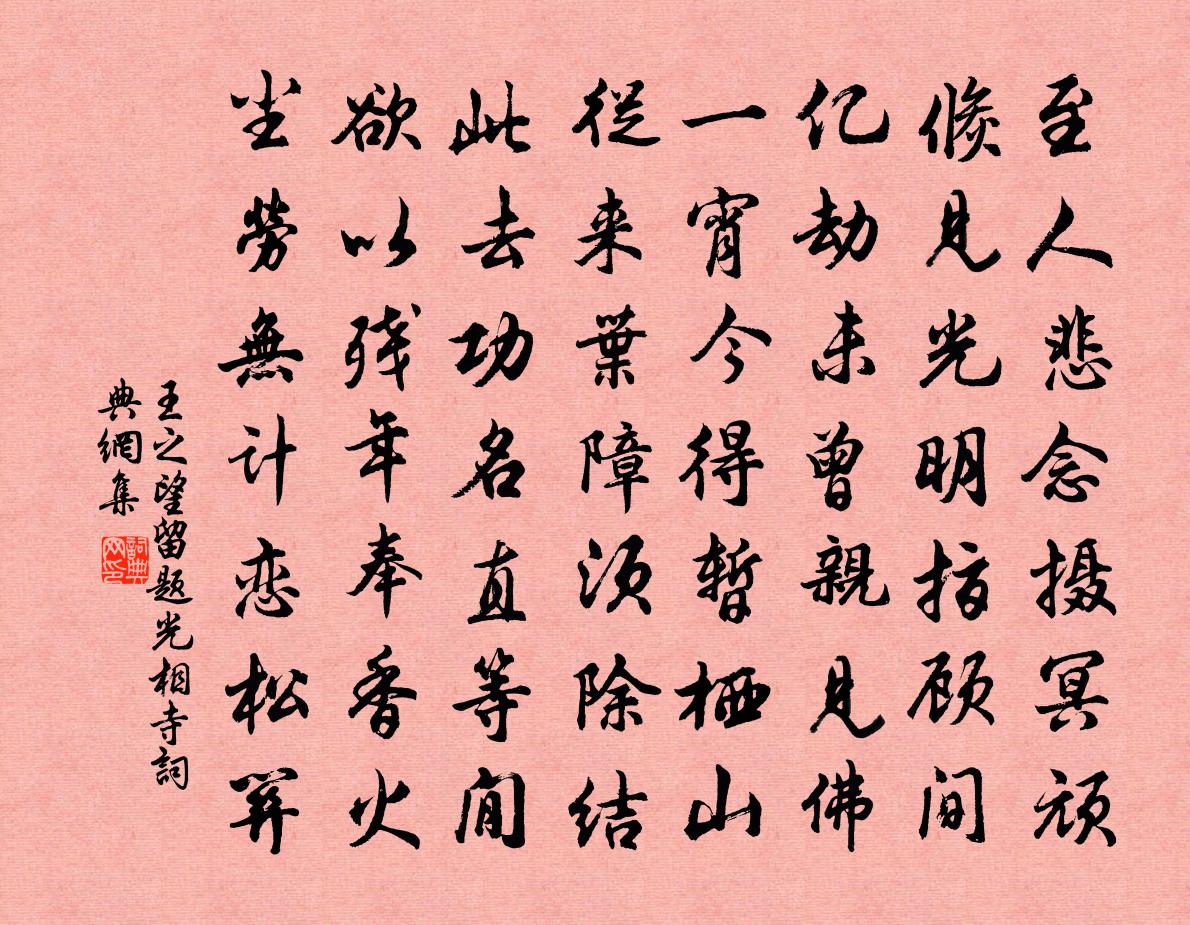 至人悲念摄冥顽
倐见光明指顾间
亿劫未曾親见佛
一宵今得暂栖山
従来業障须除结
此去功名直等闲
欲以残年奉香火
尘勞無计恋松関
王之望留题光相寺詞
典網集
詞典网印